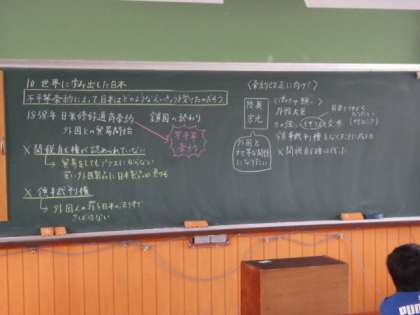 10 世界に歩み出した日本
不平等条約によって日本はどのようなえいきょうを受けたのだろう
1858年 日米修好通商条約
外国との貿易開始
鎖国の終わり
不平等
条約
× 関税自主権が認められていない
→ 貿易をしてもプラスにならない
安い外国製品に日本製品が負ける
× 領事裁判権
→ 外国人の罪を日本の法律で
さばけない
<条約改正に向けて>
陸奥
宗光
外国と
対等な関係に
なりたい
外務大臣
領事裁判権をなくすことに成功
× 関税自主権は